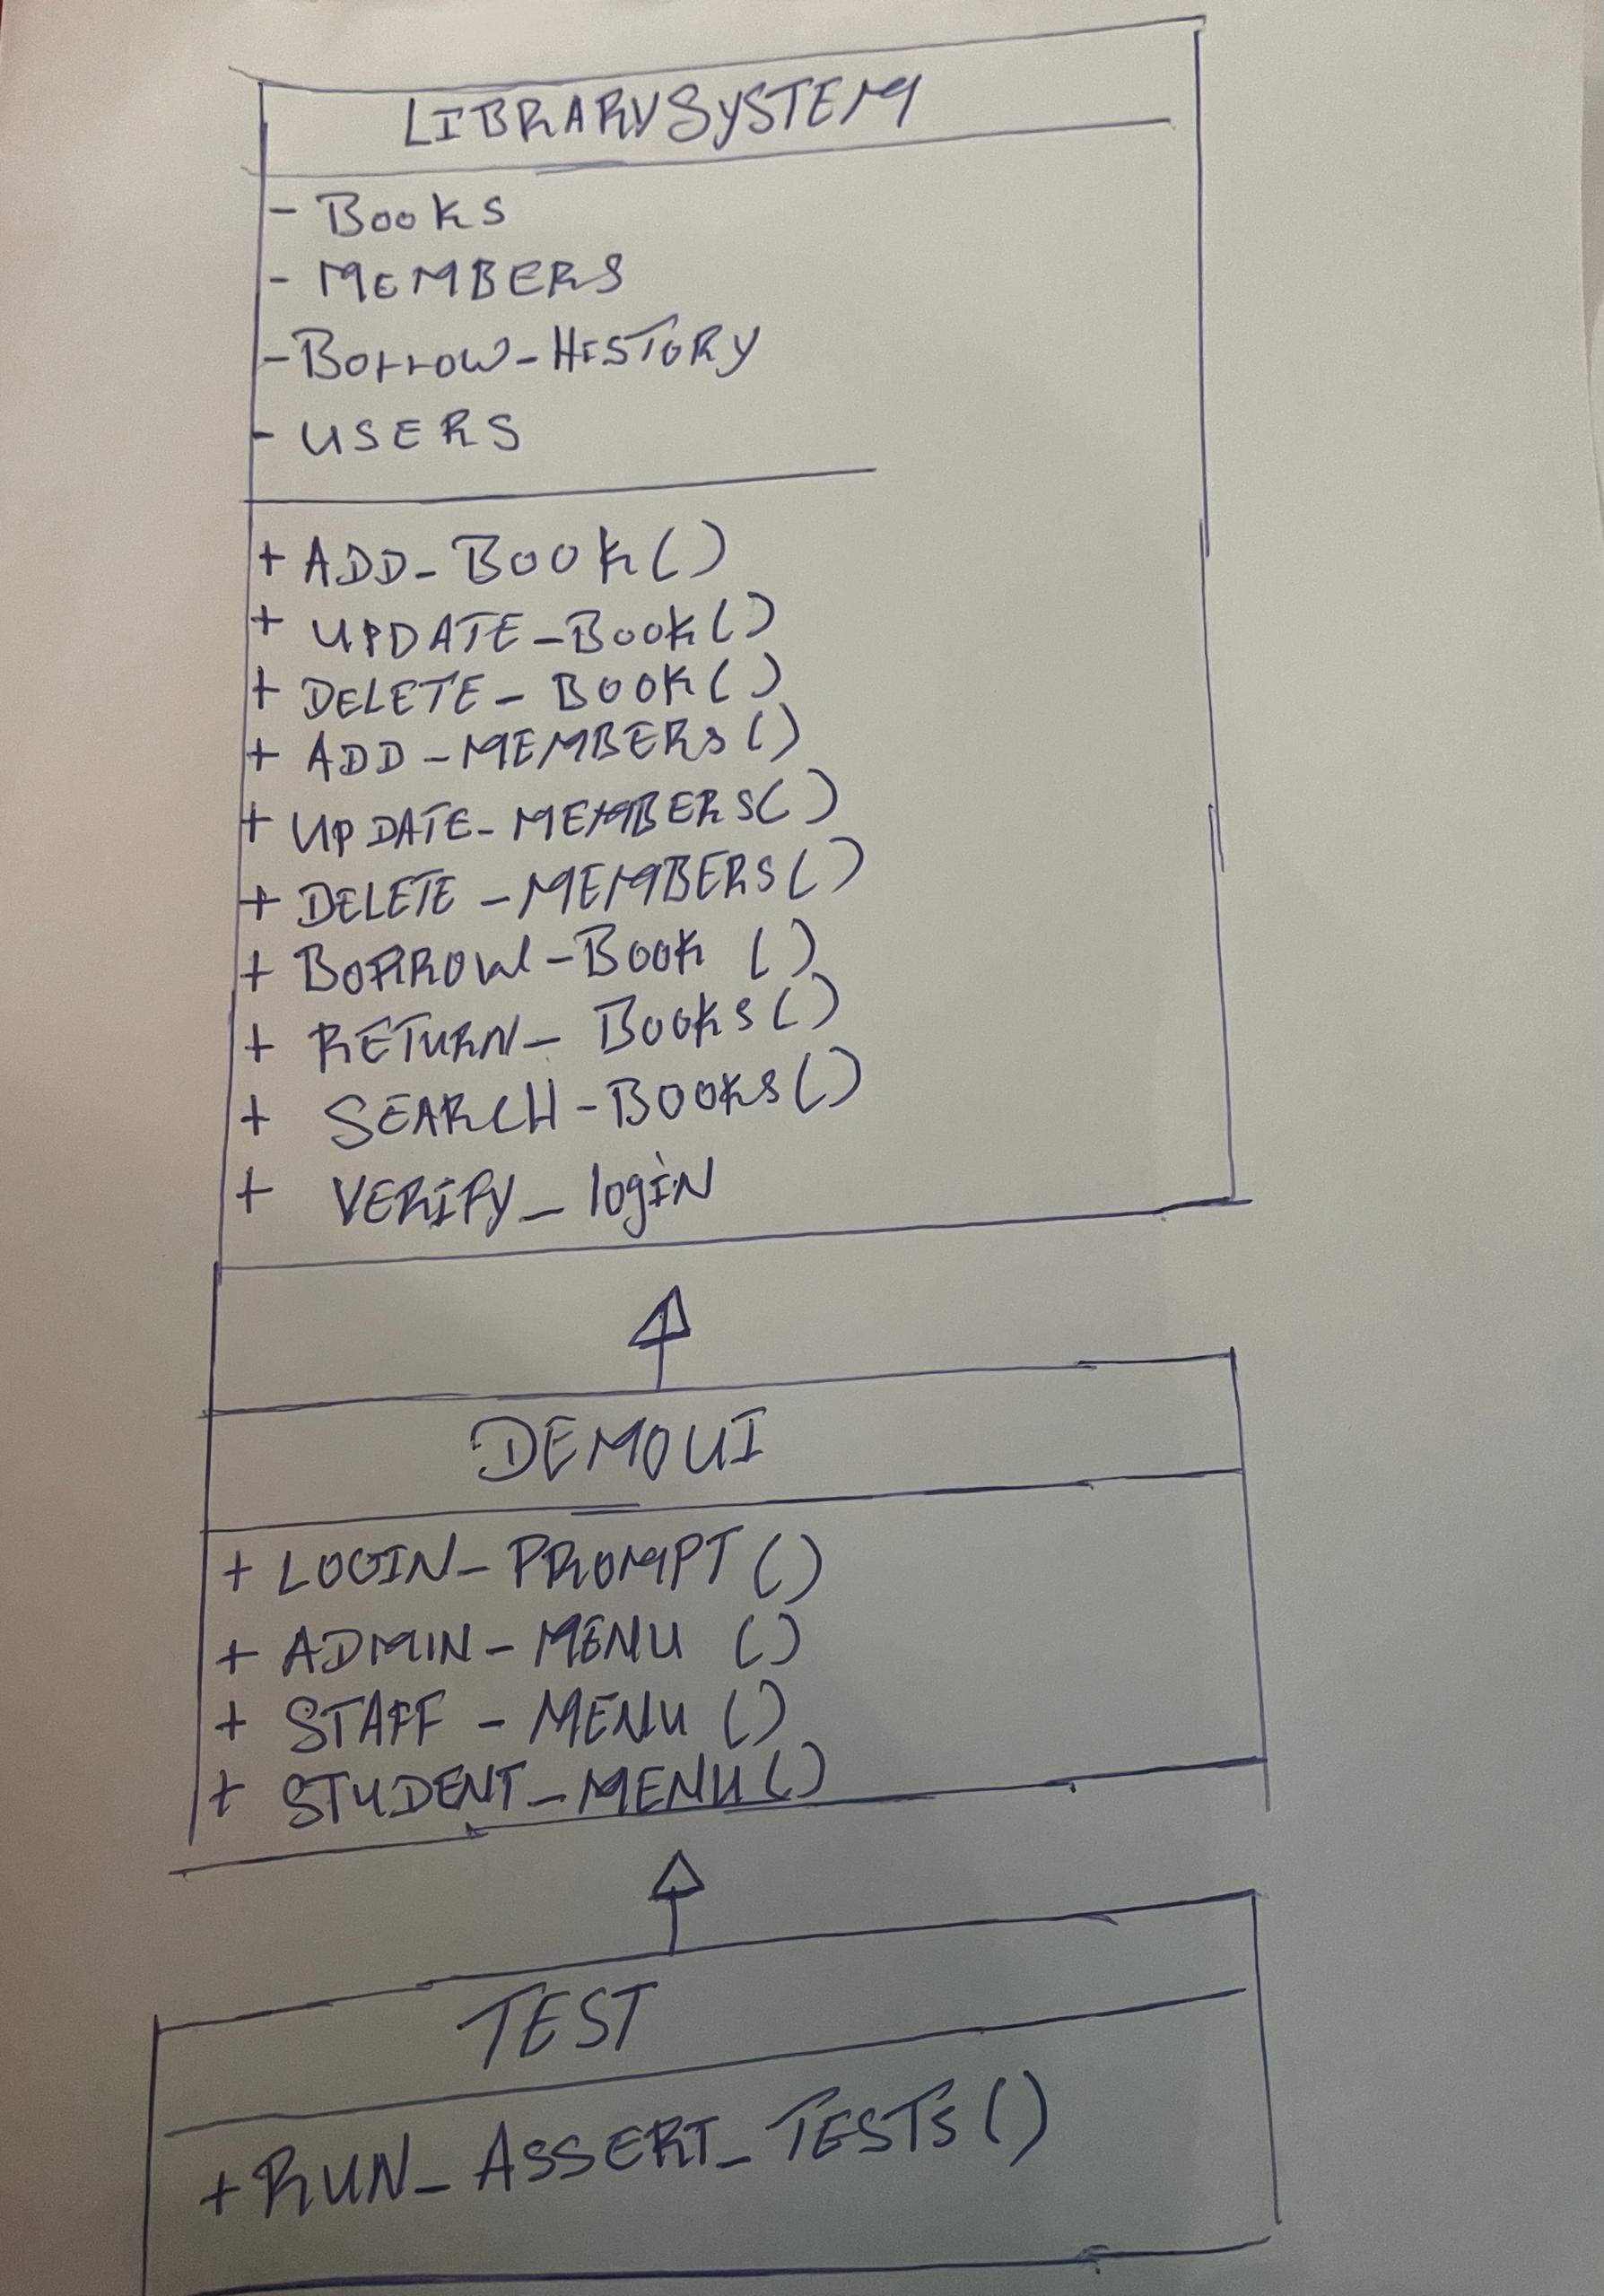 LIBRARYSYSTEM
- Books
- MEMBERS
- Borrow-HISTORY
- USERS
+ ADD_Book()
+ UPDATE_Book()
+ DELETE_BOOK()
+ ADD_MEMBERS()
+ UPDATE_MEMBERS()
+ DELETE_MEMBERS()
+ BORROW-BOOK ()
+ RETURN_BOOKS()
+ SEARCH-BOOKS()
+ VERIFY_login
DEMOUI
+ LOGIN_PROMPT()
+ ADMIN-MENU ()
+ STAFF - MENU ()
+ STUDENT_MENU()
TEST
+RUN_ASSERT_TESTS()